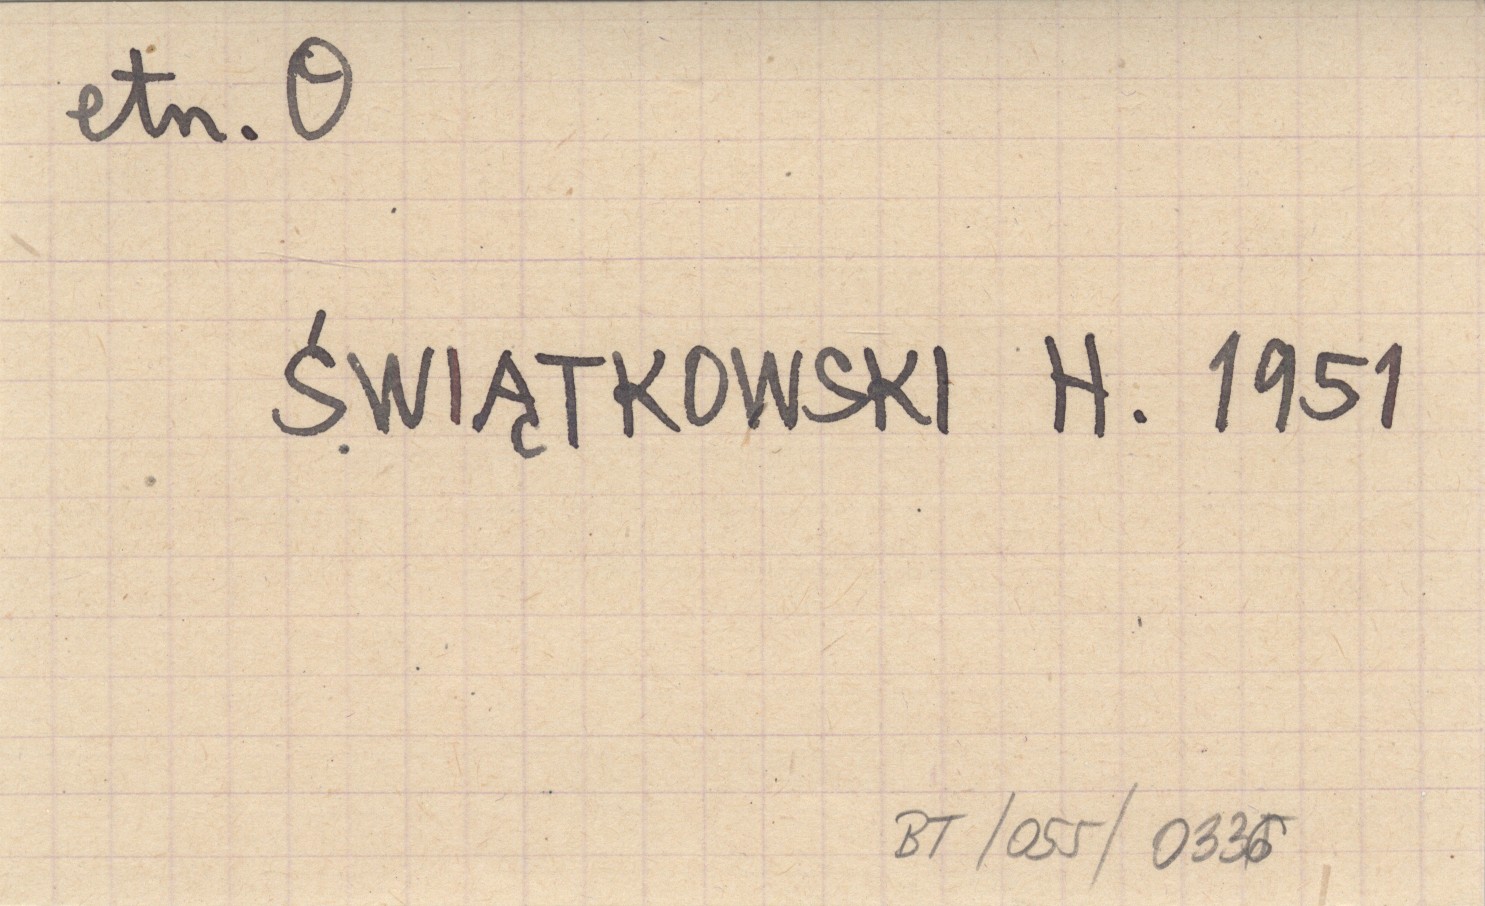 etn. O
ŚWIĄTKOWSKI H. 1951
BT /055/